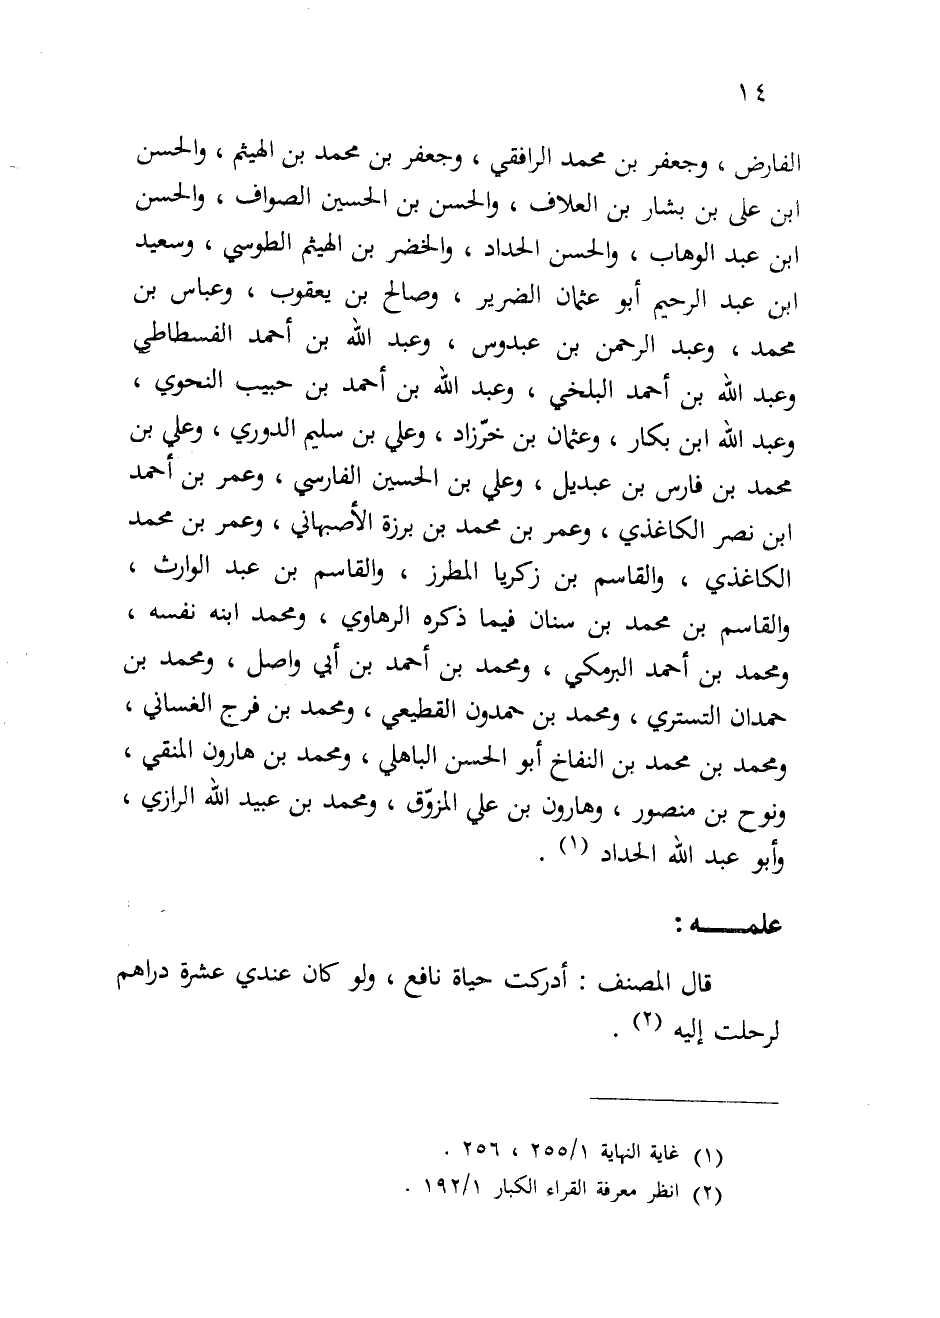 ١٤
الفارض ، وجعفر بن محمد الرافقي ، وجعفر بن محمد بن الهيثم ، والحسن
ابن على بن بشار بن العلاف ، والحسن بن الحسين الصواف ، والحسن
ابن عبد الوهاب ، والحسن الحداد ، والخضر بن الهيثم الطوسي ، وسعيد
ابن عبد الرحيم أبو عثمان الضرير ، وصالح بن يعقوب ، وعباس بن
محمد ، وعبد الرحمن بن عبدوس ، وعبد الله بن أحمد الفسطاطي
وعبد الله بن أحمد البلخي ، وعبد الله بن أحمد بن حبيب النحوي ،
وعبد الله ابن بكار ، وعثمان بن خرّزاد ، وعلي بن سليم الدوري ، وعلي بن
محمد بن فارس بن عبديل ، وعلي بن الحسين الفارسي ، وعمر بن أحمد
ابن نصر الكاغذي ، وعمر بن محمد بن برزة الأصبهاني ، وعمر بن محمد
الكاغذي ، والقاسم بن زكريا المطرز ، والقاسم بن عبد الوارث ،
والقاسم بن محمد بن سنان فيما ذكره الرهاوي ، ومحمد ابنه نفسه ،
ومحمد بن أحمد البرمكي ، ومحمد بن أحمد بن أبي واصل ، ومحمد بن
حمدان التستري ، ومحمد بن حمدون القطيعي ، ومحمد بن فرج الغساني ،
ومحمد بن محمد بن النفاخ أبو الحسن الباهلي ، ومحمد بن هارون المنقي ،
ونوح بن منصور ، وهارون بن علي المزوّق ، ومحمد بن عبيد الله الرازي ،
وأبو عبد الله الحداد (١) .
علمـــــه :
قال المصنف : أدركت حياة نافع ، ولو كان عندي عشرة دراهم
لرحلت إليه (٢) .
(١) غاية النهاية ٢٥٥/١ ، ٢٥٦ .
(٢) انظر معرفة القراء الكبار ١٩٢/١ .